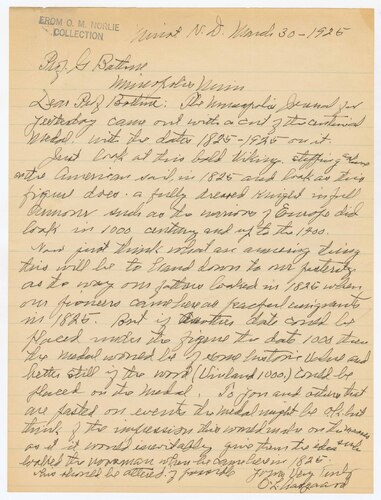 FROM O. M. NORLIE
COLLECTION
Minot N.D. March 30 - 1925
Prof. G Bothne
Minneapolis Minn
Dear Prof. Bothne: The Minneapolis Journal for
yesterday came out with a cut of the centennial
Medal. with the dates 1825-1925 on it.
Just look at this bold Viking stepping
on the American soil in 1825 and look as this
figure does. a fully dressed Knight in full
Armour such as the warriors of Europe did
look in 1000 century and up to the 1900.
Now just think what an amusing thing
this will be to hand down to our posterity
as the way our fathers looked in 1825 when
our pioneers came here as peaceful emigrants
in 1825. But if another date could be
placed under the figure the date 1000 then
the medal would be of some historic value and
better still if the word (Vinland 1000) could be
placed on the medal. To you and others that
are posted on events the medal might be O.K. but
think of the impression this would make on the masses
as it would inevitably give them the idea such
looked the norseman when he came here in 1825.
This should be altered if possible
Yours Very Truly